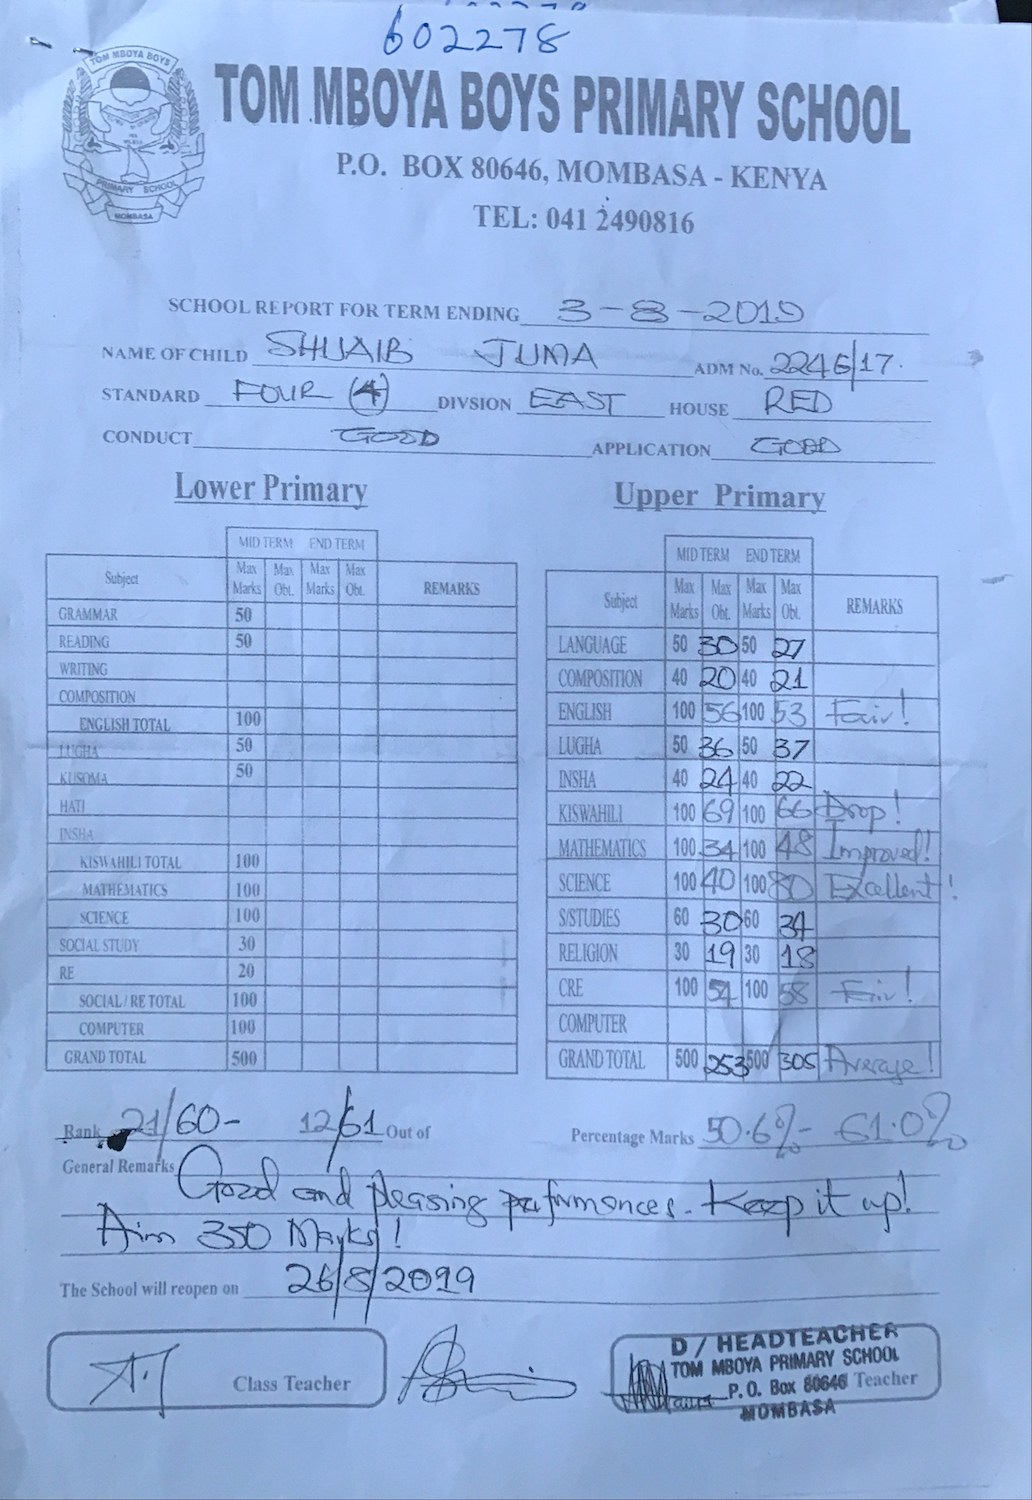 602278
TOM MBOYA BOYS
PRIMARY SCHOOL
MOMBASA
TOM MBOYA BOYS PRIMARY SCHOOL
P.O. BOX 80646, MOMBASA - KENYA
TEL: 041 2490816
SCHOOL REPORT FOR TERM ENDING 3-8-2019
NAME OF CHILD SHUAIB JUMA ADM No. 2246/17.
STANDARD FOUR (4) DIVSION EAST HOUSE RED
CONDUCT GOOD APPLICATION GOOD
Lower Primary
MID TERM END TERM
Subject Max Marks Max Obt. Max Marks Max Obt. REMARKS
GRAMMAR 50
READING 50
WRITING
COMPOSITION
ENGLISH TOTAL 100
LUGHA 50
KUSOMA 50
HATI
INSHA
KISWAHILI TOTAL 100
MATHEMATICS 100
SCIENCE 100
SOCIAL STUDY 30
RE 20
SOCIAL / RE TOTAL 100
COMPUTER 100
GRAND TOTAL 500
Upper Primary
MID TERM END TERM
Subject Max Marks Max Obt. Max Marks Max Obt. REMARKS
LANGUAGE 50 30 50 27
COMPOSITION 40 20 40 21
ENGLISH 100 56 100 53 Fair!
LUGHA 50 36 50 37
INSHA 40 24 40 22
KISWAHILI 100 69 100 66 Drop!
MATHEMATICS 100 34 100 48 Improved!
SCIENCE 100 40 100 80 Excellent!
S/STUDIES 60 30 60 34
RELIGION 30 19 30 18
CRE 100 54 100 58 Fair!
COMPUTER
GRAND TOTAL 500 253 500 305 Average!
Rank 21/60- 12/61 Out of Percentage Marks 50.6%- 61.0%
General Remarks Good and pleasing performances. Keep it up!
Aim 350 Marks!
The School will reopen on 26/8/2019
Class Teacher
D / HEADTEACHER
TOM MBOYA PRIMARY SCHOOL
P. O. Box 80646 Teacher
MOMBASA